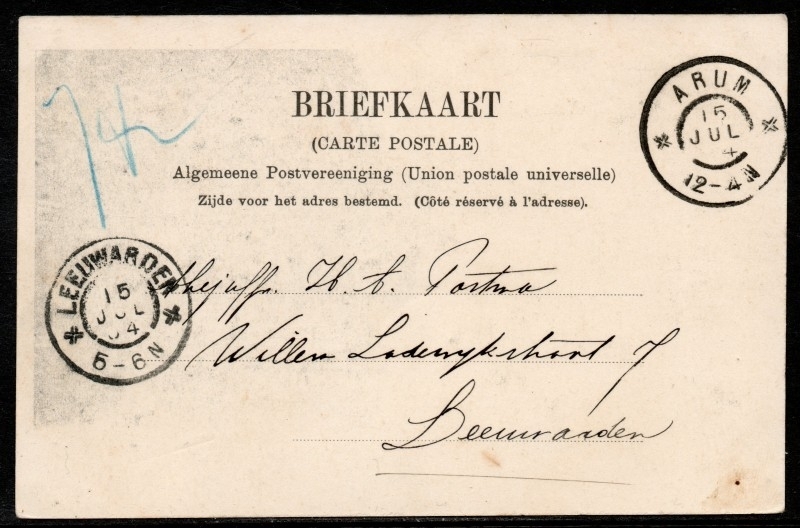 BRIEFKAART
(CARTE POSTALE)
Algemeene Postvereeniging (Union postale universelle)
Zijde voor het adres bestemd. (Côté réservé à l'adresse).
ARUM
15
JUL
4
12-4N
LEEUWARDEN
15
JUL
04
5-6N
Mejuffr. H. A. Postma
Willem Lodewijkstraat 7
Leeuwarden